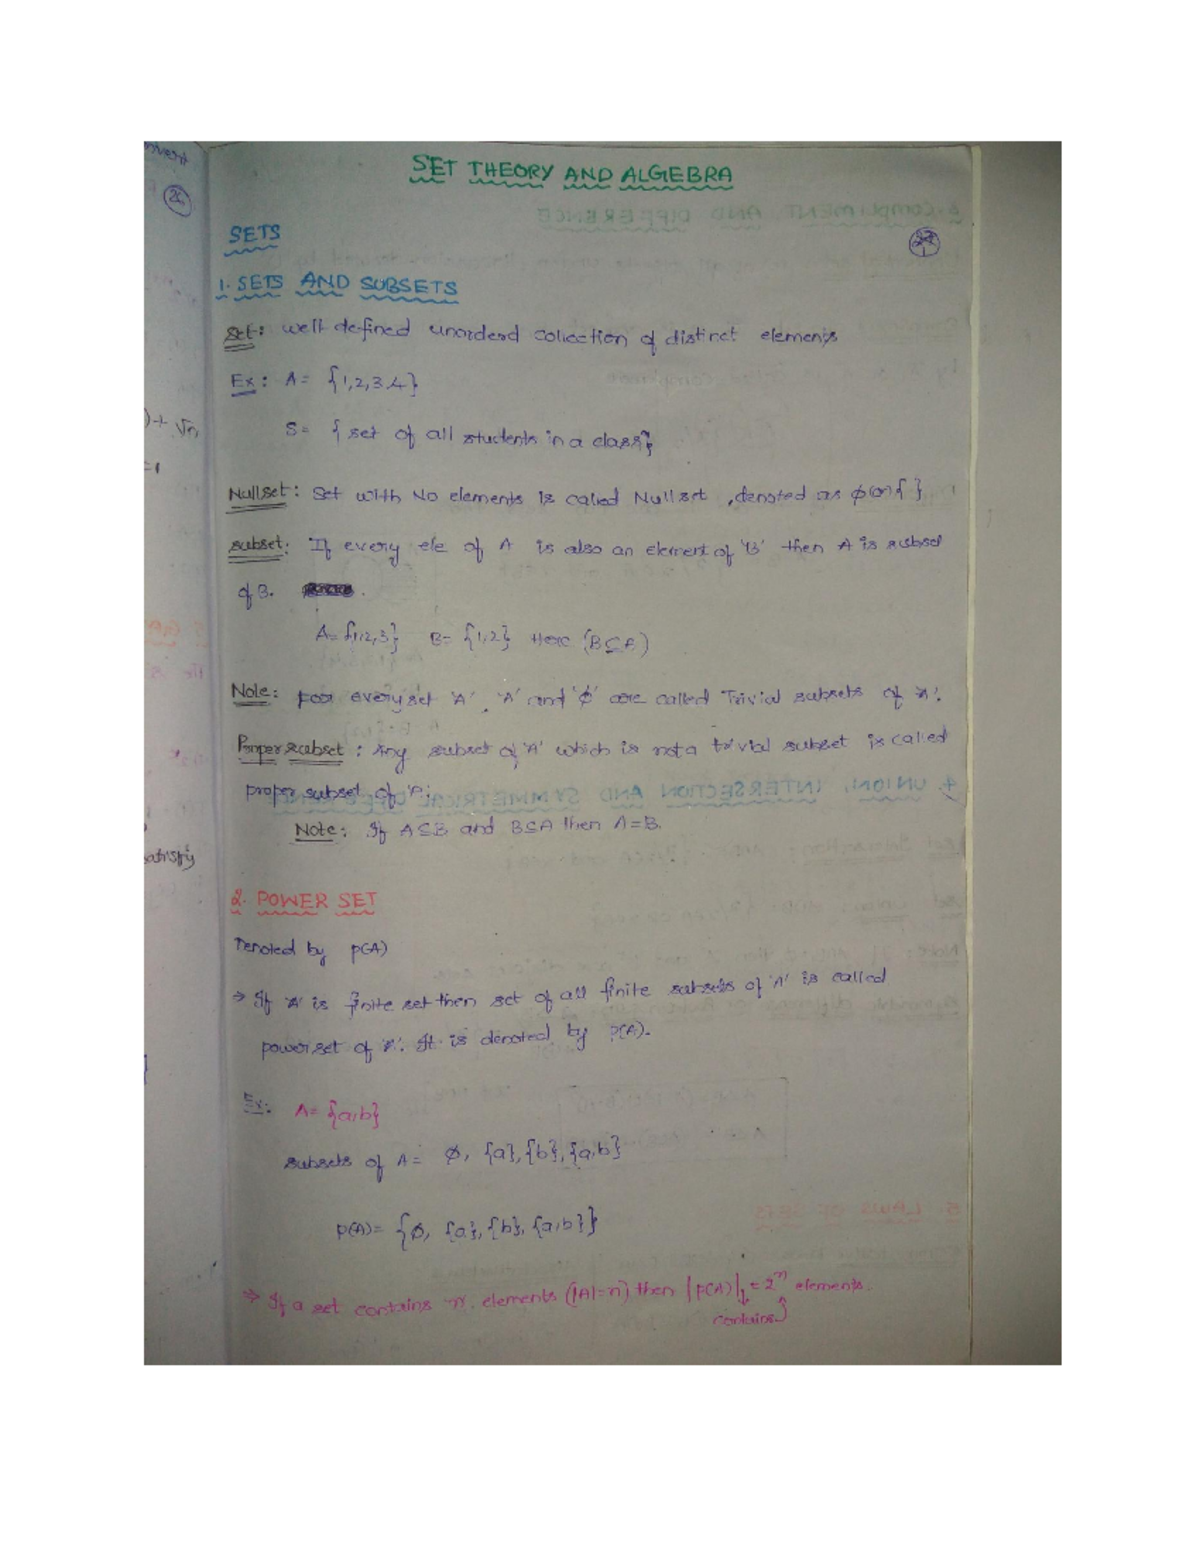 SET THEORY AND ALGEBRA
SETS
1. SETS AND SUBSETS
Set: well defined unorderd collection of distinct elements
Ex: A= {1,2,3,4}
S= { set of all students in a class}
Nullset: Set with No elements is called Null set, denoted as ϕ (or) { }
subset: If every ele of A is also an element of 'B' then A is subset
of B.
A= {1,2,3} B= {1,2} Here (B⊆A)
Note: For every set 'A', 'A' and 'ϕ' are called Trivial subsets of 'A'.
Proper subset: Any subset of 'A' which is not a trivial subset is called
proper subset of 'A'.
Note: If A⊆B and B⊆A then A=B.
2. POWER SET
Denoted by P(A)
→ If 'A' is finite set then set of all finite subsets of 'A' is called
power set of 'A'. It is denoted by P(A).
Ex: A= {a,b}
subsets of A= ϕ, {a}, {b}, {a,b}
P(A)= {ϕ, {a}, {b}, {a,b}}
⇒ If a set contains 'n' elements (|A|=n) then |P(A)| = 2ⁿ elements.
contains
satisfy